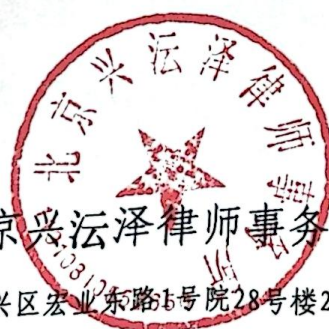 北京兴沄泽律师事务所
京兴沄泽律师事务
兴区宏业东路1号院28号楼2